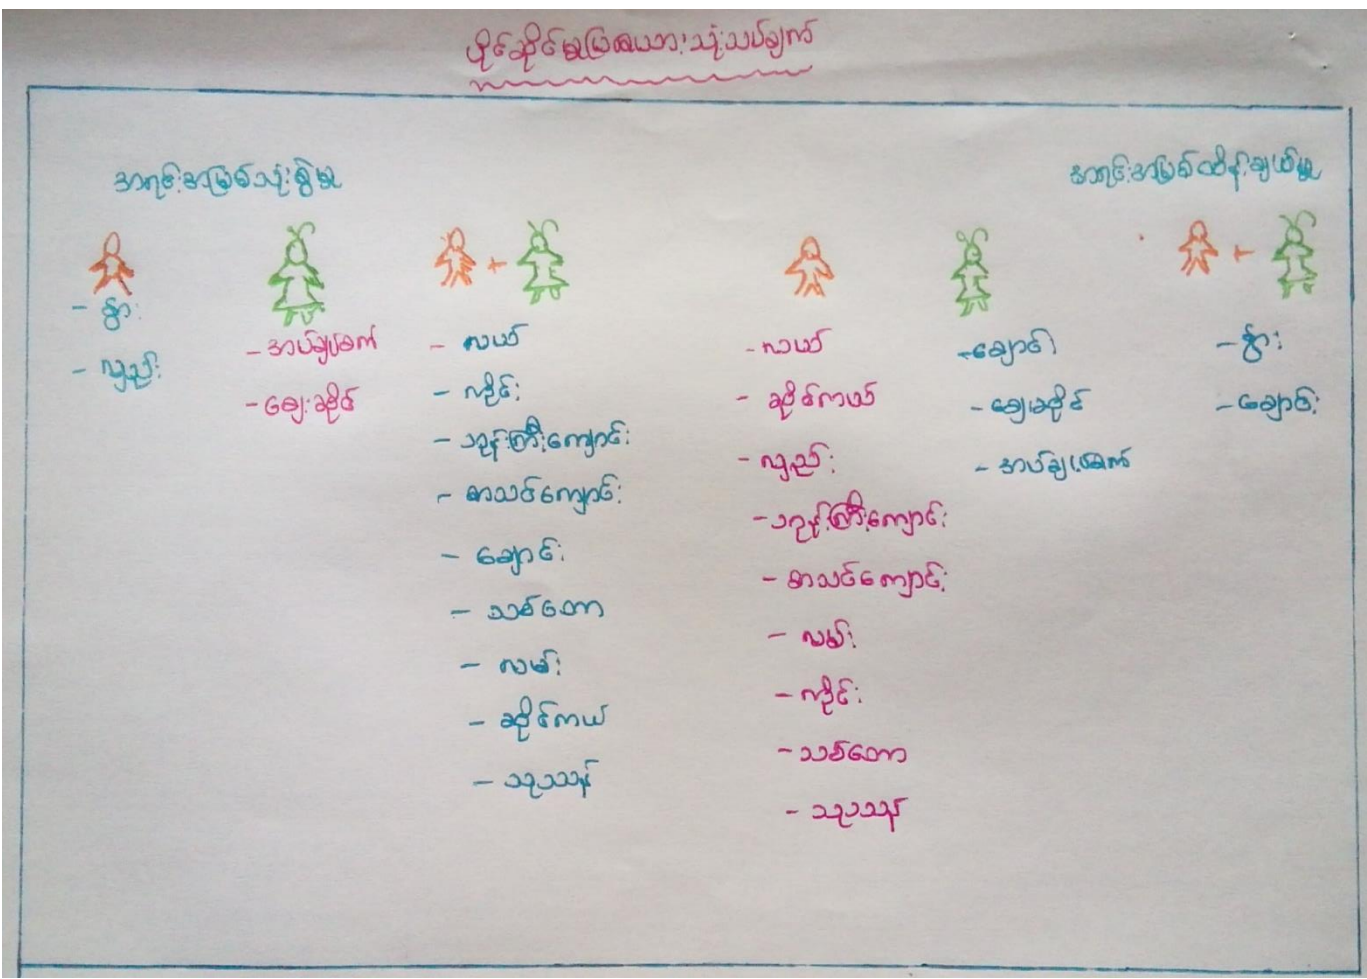 ပိုင်ဆိုင်မှုပြဇယားသုံးသပ်ချက်
အရင်းအမြစ်သုံးစွဲမှု
အရင်းအမြစ်ထိန်းချုပ်မှု
+
+
- နွား
- လှည်း
- အပ်ချုပ်စက်
- ဈေးဆိုင်
- လယ်
- ကိုင်း
- ဘုန်းကြီးကျောင်း
- စာသင်ကျောင်း
- ချောင်း
- သစ်တော
- လမ်း
- ဆိုင်ကယ်
- သုဿာန်
- လယ်
- ဆိုင်ကယ်
- လှည်း
- ဘုန်းကြီးကျောင်း
- စာသင်ကျောင်း
- လမ်း
- ကိုင်း
- သစ်တော
- သုဿာန်
- ချောင်း
- ဈေးဆိုင်
- အပ်ချုပ်စက်
- နွား
- ချောင်း